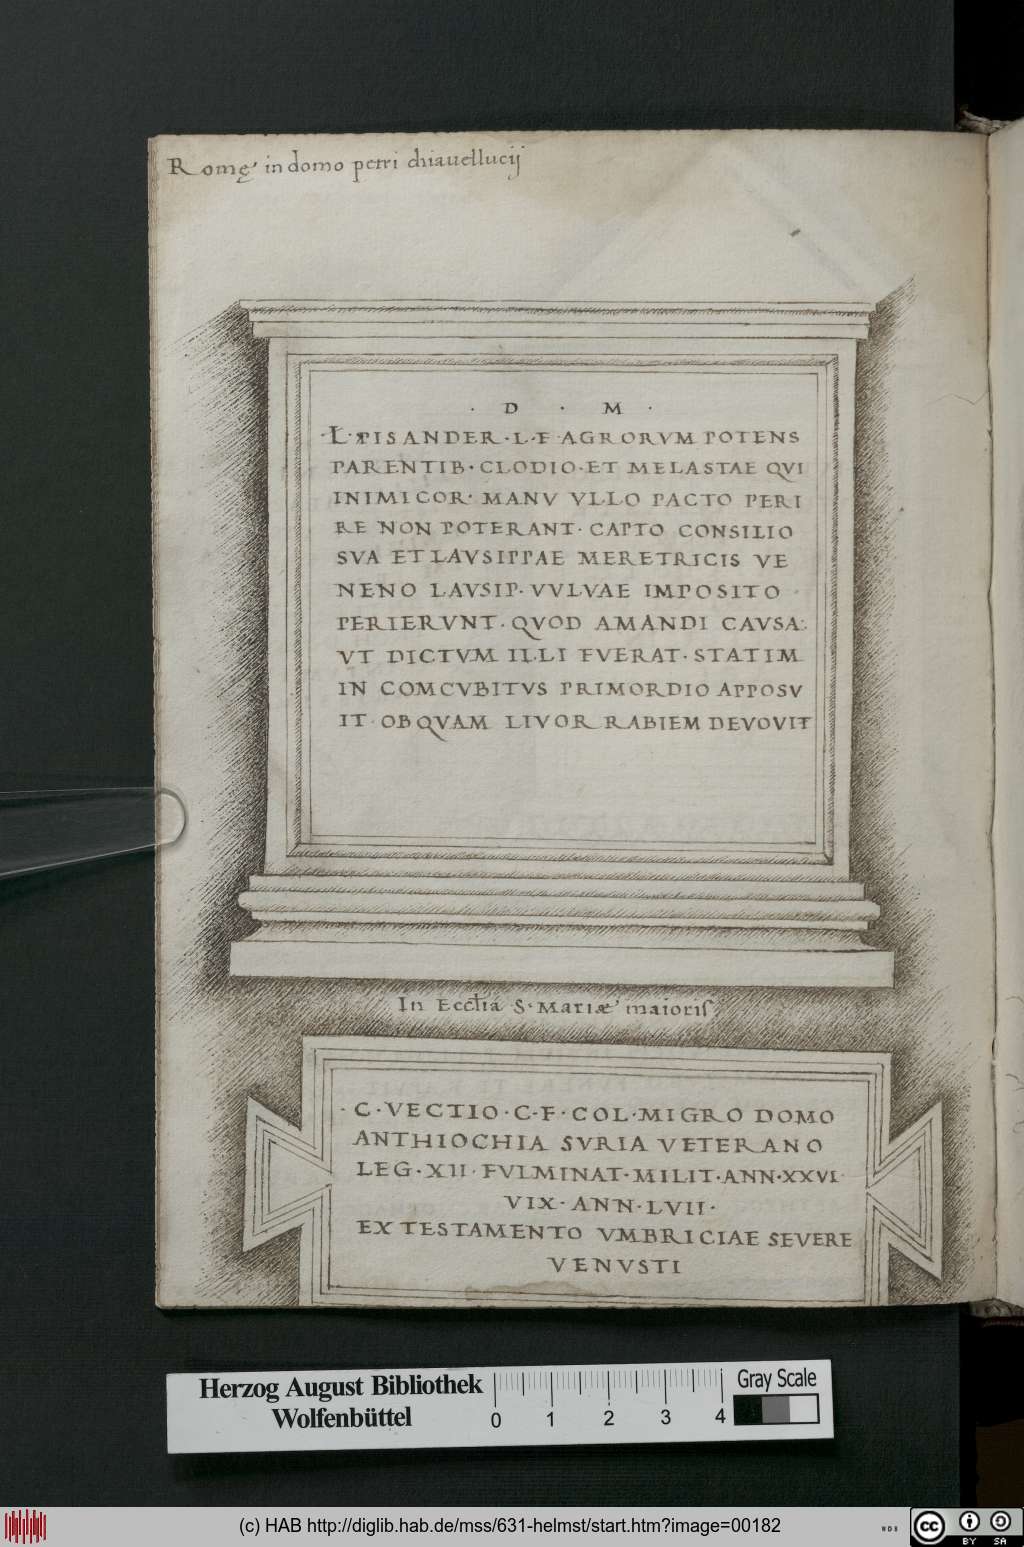 Romę in domo petri chiauellucij
· D · M ·
· L · PISANDER · L · F · AGRORVM POTENS
PARENTIB · CLODIO · ET MELASTAE QVI
INIMICOR · MANV VLLO PACTO PERI
RE NON POTERANT · CAPTO CONSILIO
SVA ET LAVSIPPAE MERETRICIS VE
NENO LAVSIP · VVLVAE IMPOSITO
PERIERVNT · QVOD AMANDI CAVSA
VT DICTVM ILLI FVERAT · STATIM
IN COMCVBITVS PRIMORDIO APPOSV
IT · OBQVAM LIVOR RABIEM DEVOVIT
In Eccl̄ia S · Mariæ maioris
· C · VECTIO · C · F · COL · MIGRO DOMO
ANTHIOCHIA SVRIA VETERANO
LEG · XII · FVLMINAT · MILIT · ANN · XXVI ·
VIX · ANN · LVII ·
EX TESTAMENTO VMBRICIAE SEVERE
VENVSTI
Herzog August Bibliothek
Wolfenbüttel
0 1 2 3 4
Gray Scale
(c) HAB http://diglib.hab.de/mss/631-helmst/start.htm?image=00182
WDB
cc BY SA